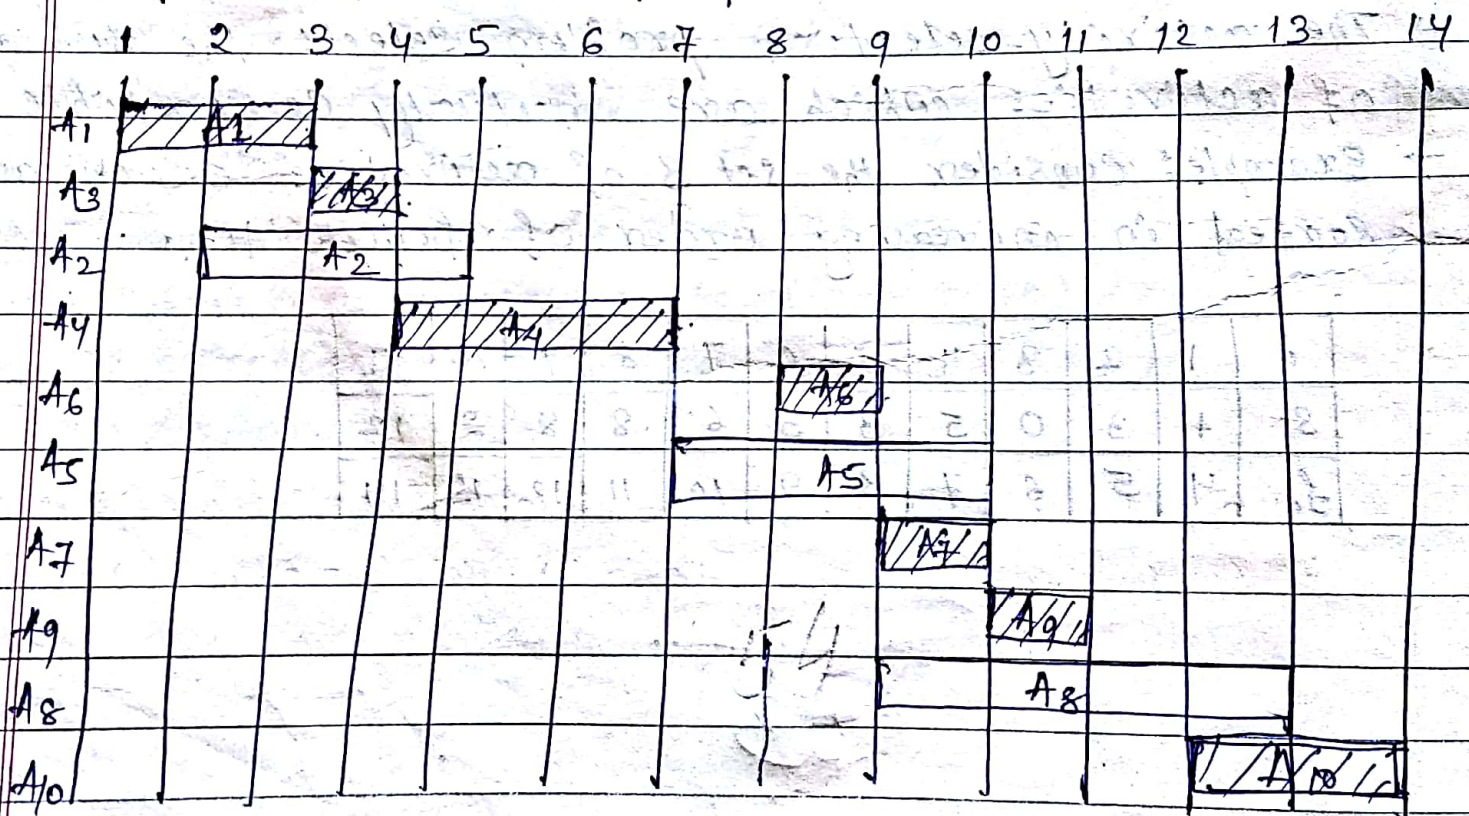 1 2 3 4 5 6 7 8 9 10 11 12 13 14
A1 A1
A3 A3
A2 A2
A4 A4
A6 A6
A5 A5
A7 A7
A9 A9
A8 A8
A10 A10